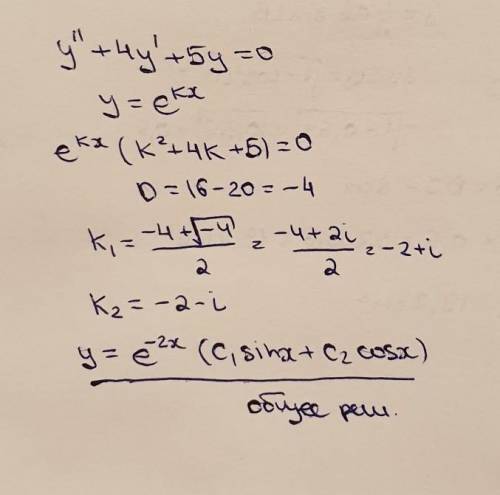 y'' + 4y' + 5y = 0
y = e^{kx}
e^{kx} (k² + 4k + 5) = 0
D = 16 - 20 = -4
k₁ = \frac{-4 + \sqrt{-4}}{2} = \frac{-4 + 2i}{2} = -2 + i
k₂ = -2 - i
y = e^{-2x} (C₁ sinx + C₂ cosx)
общее реш.